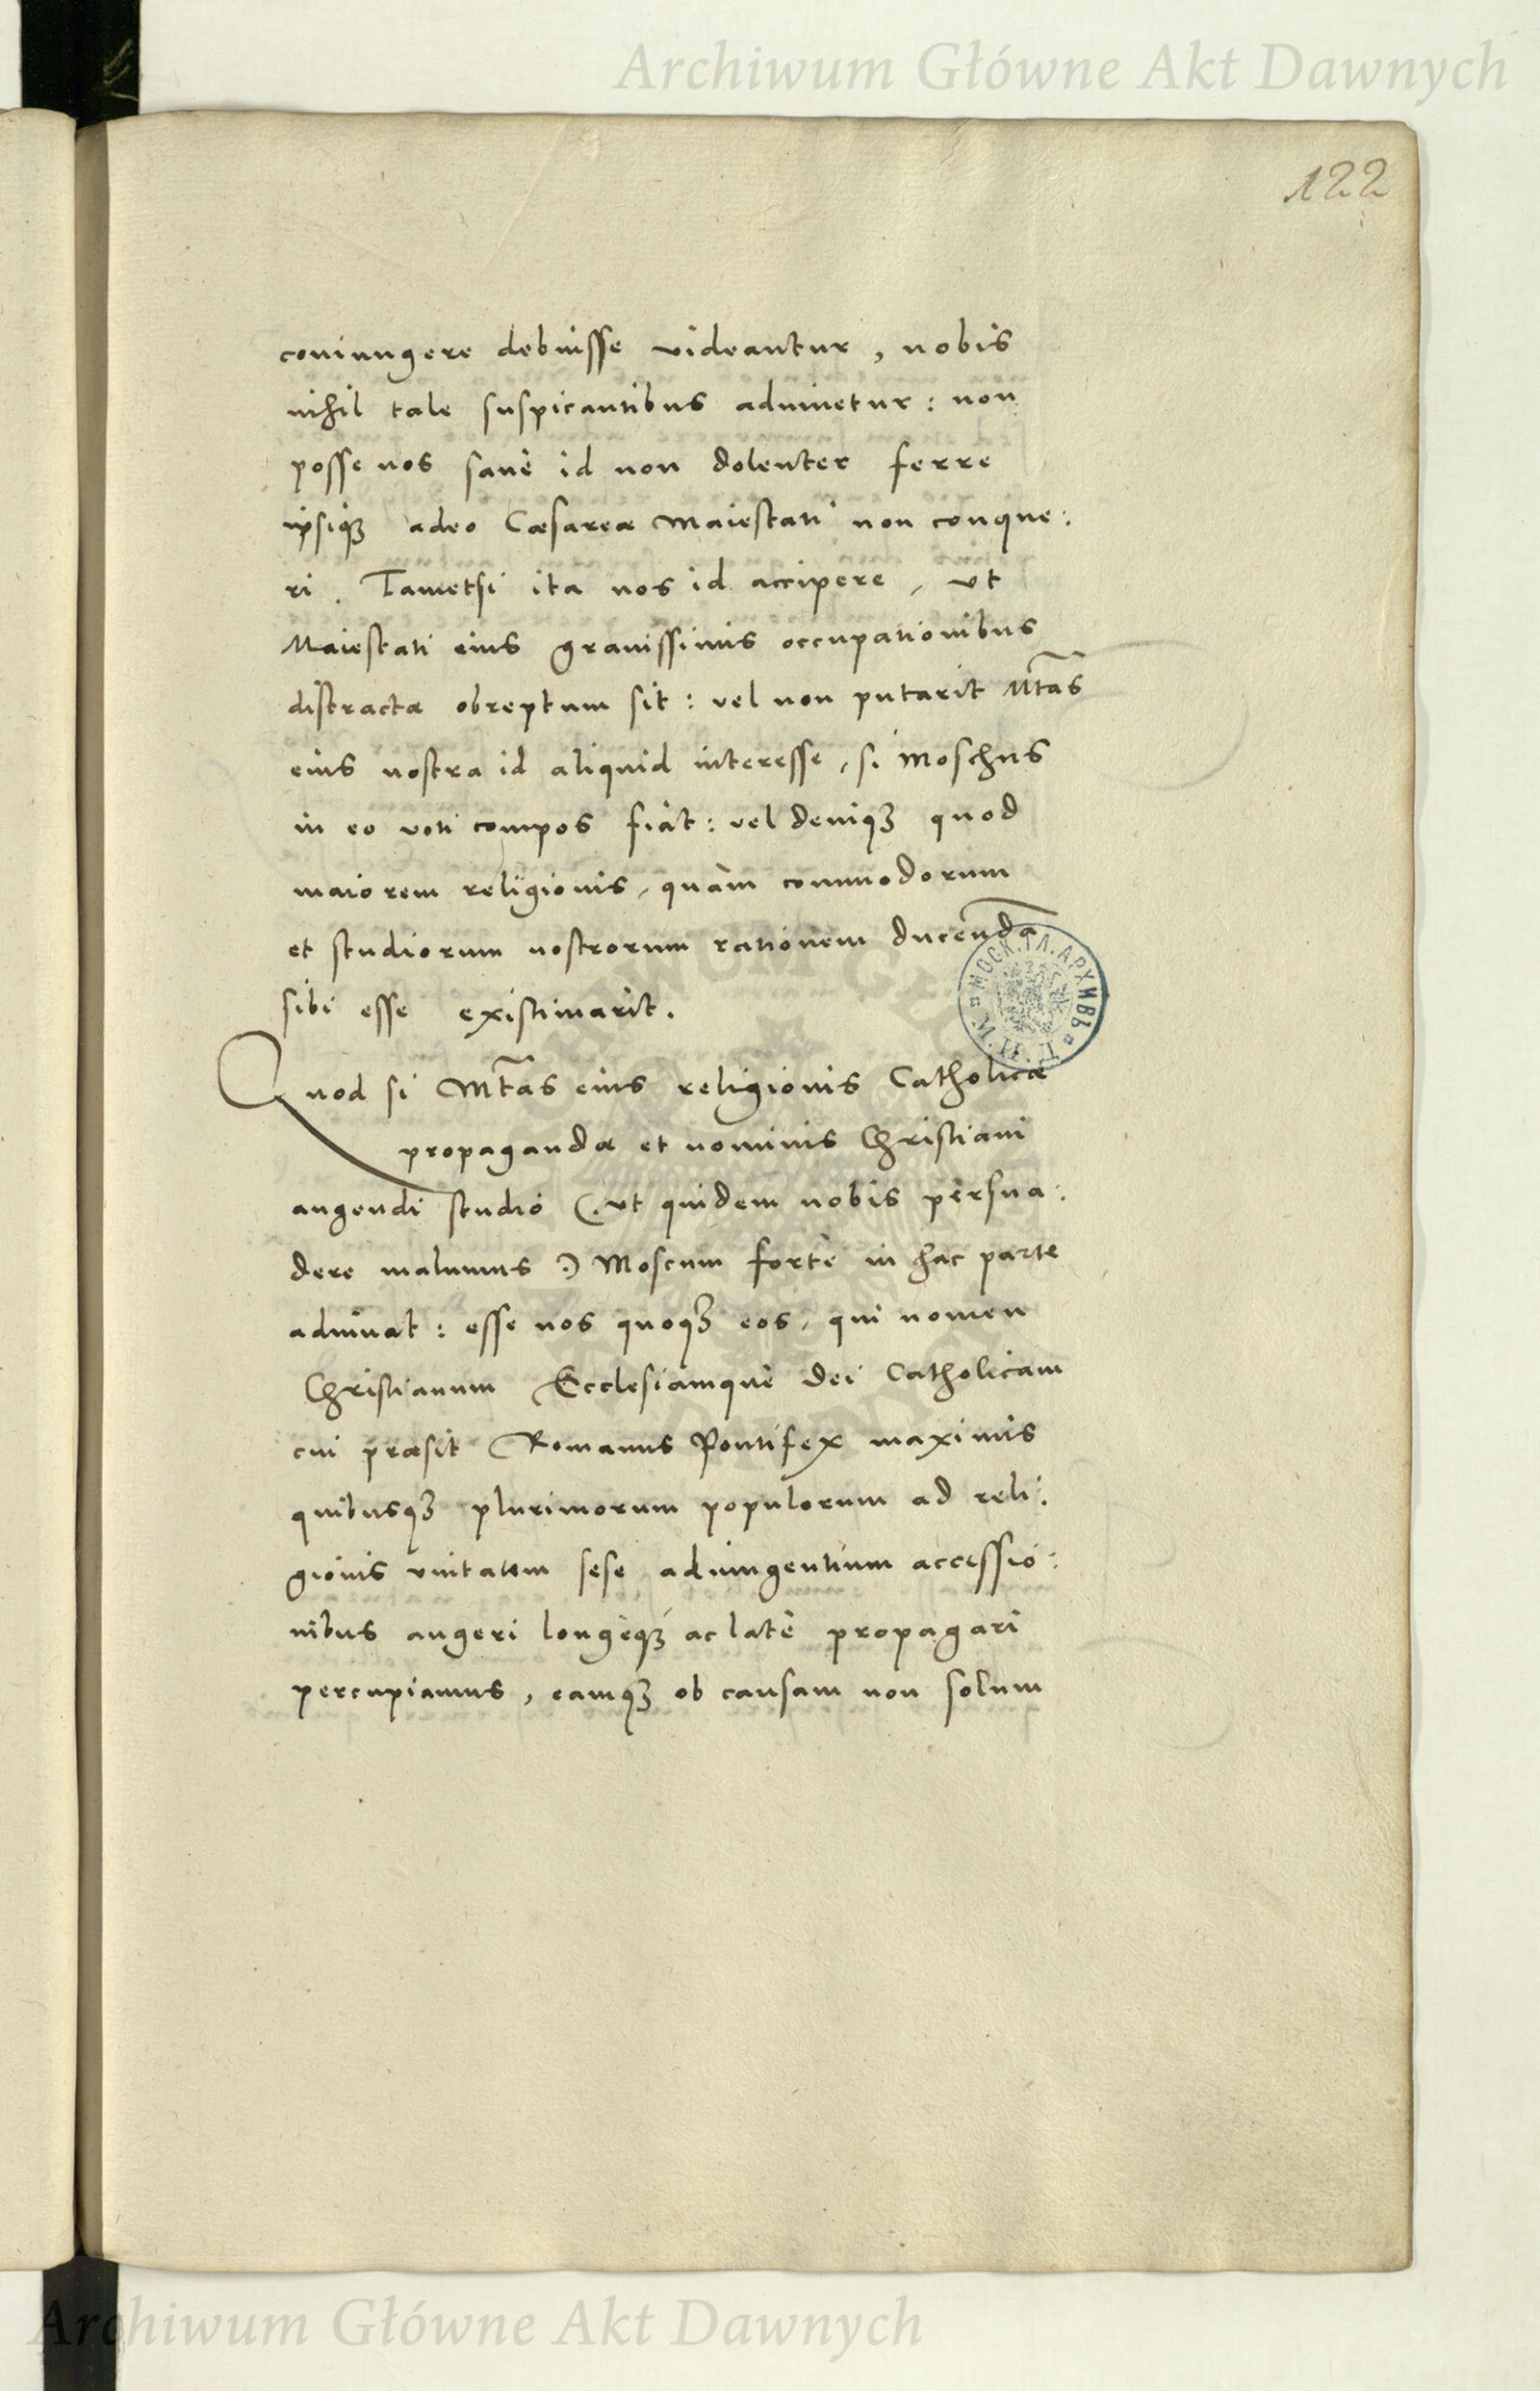 Archiwum Główne Akt Dawnych
122
coniungere debuisse videantur, nobis
nihil tale suspicantibus adimetur: non
posse nos sanè id non dolenter ferre
ipsiq3 adeo Cæsareæ Maiestati non conque:
ri. Tametsi ita nos id accipere, ut
Maiestati eius gravissimis occupationibus
distractæ obreptum sit: vel non putarit Mtãs
eius nostra id aliquid interesse, si Moschus
in eo voti compos fiat: vel deniq3 quod
maiorem religionis, quàm commodorum
et studiorum nostrorum rationem ducendã
sibi esse existimarit.
Quod si Mtãs eius religionis Catholicæ
propagandæ et nominis Christiani
augendi studio (: ut quidem nobis persua:
dere malumus :) Moscum fortè in hac parte
adiuvat: esse nos quoq3 eos, qui nomen
Christianum Ecclesiamque Dei Catholicam
cui præsit Romanus Pontifex maximis
quibusq3 plurimorum populorum ad reli:
gionis unitatem sese adiungentium accessio:
nibus augeri longèq3 ac latè propagari
percupiamus, eamq3 ob causam non solum
МОСК. ГЛ. АРХИВЪ
Archiwum Główne Akt Dawnych